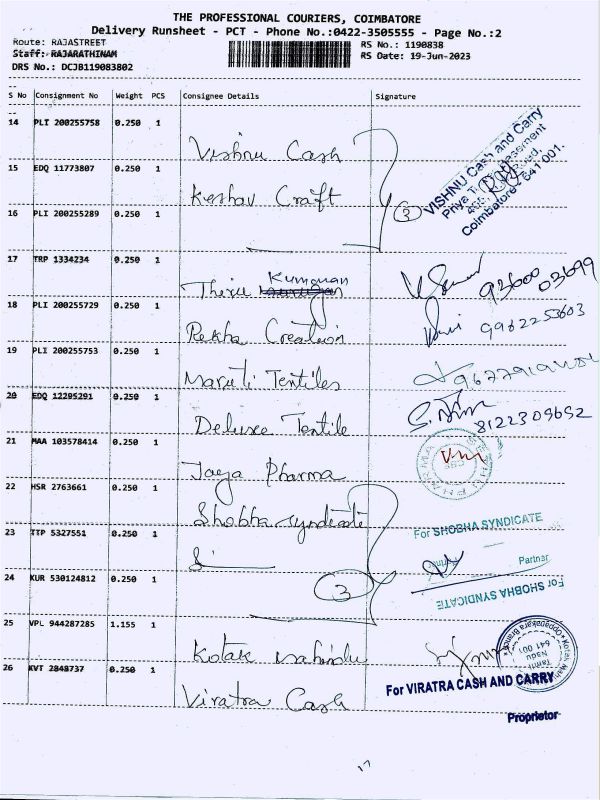 THE PROFESSIONAL COURIERS, COIMBATORE
Delivery Runsheet - PCT - Phone No.:0422-3505555 - Page No.:2
Route: RAJASTREET
RS No.: 1190838
Staff: RAJARATHINAM
RS Date: 19-Jun-2023
DRS No.: DCJB119083802
S No Consignment No Weight PCS Consignee Details Signature
14 PLI 200255758 0.250 1
Vishnu Cash
VISHNU Cash and Carry
Coimbatore - 641 001.
15 EDQ 11773807 0.250 1
Keshav Craft
3
16 PLI 200255289 0.250 1
17 TRP 1334234 0.250 1
Thiru Kumanan
93600 03699
18 PLI 200255729 0.250 1
Rekha Creation
9962253603
19 PLI 200255753 0.250 1
Maruti Textiles
20 EDQ 12295291 0.250 1
Deluxe Textile
8122309652
21 MAA 103578414 0.250 1
Jaya Pharma
22 HSR 2763661 0.250 1
Shobha Syndicate
For SHOBHA SYNDICATE
23 TTP 5327551 0.250 1
Partner
3
24 KUR 530124812 0.250 1
For SHOBHA SYNDICATE
25 VPL 944287285 1.155 1
Kotak Mahindra
26 KVT 2848737 0.250 1
Viratra Cash
For VIRATRA CASH AND CARRY
Proprietor
17